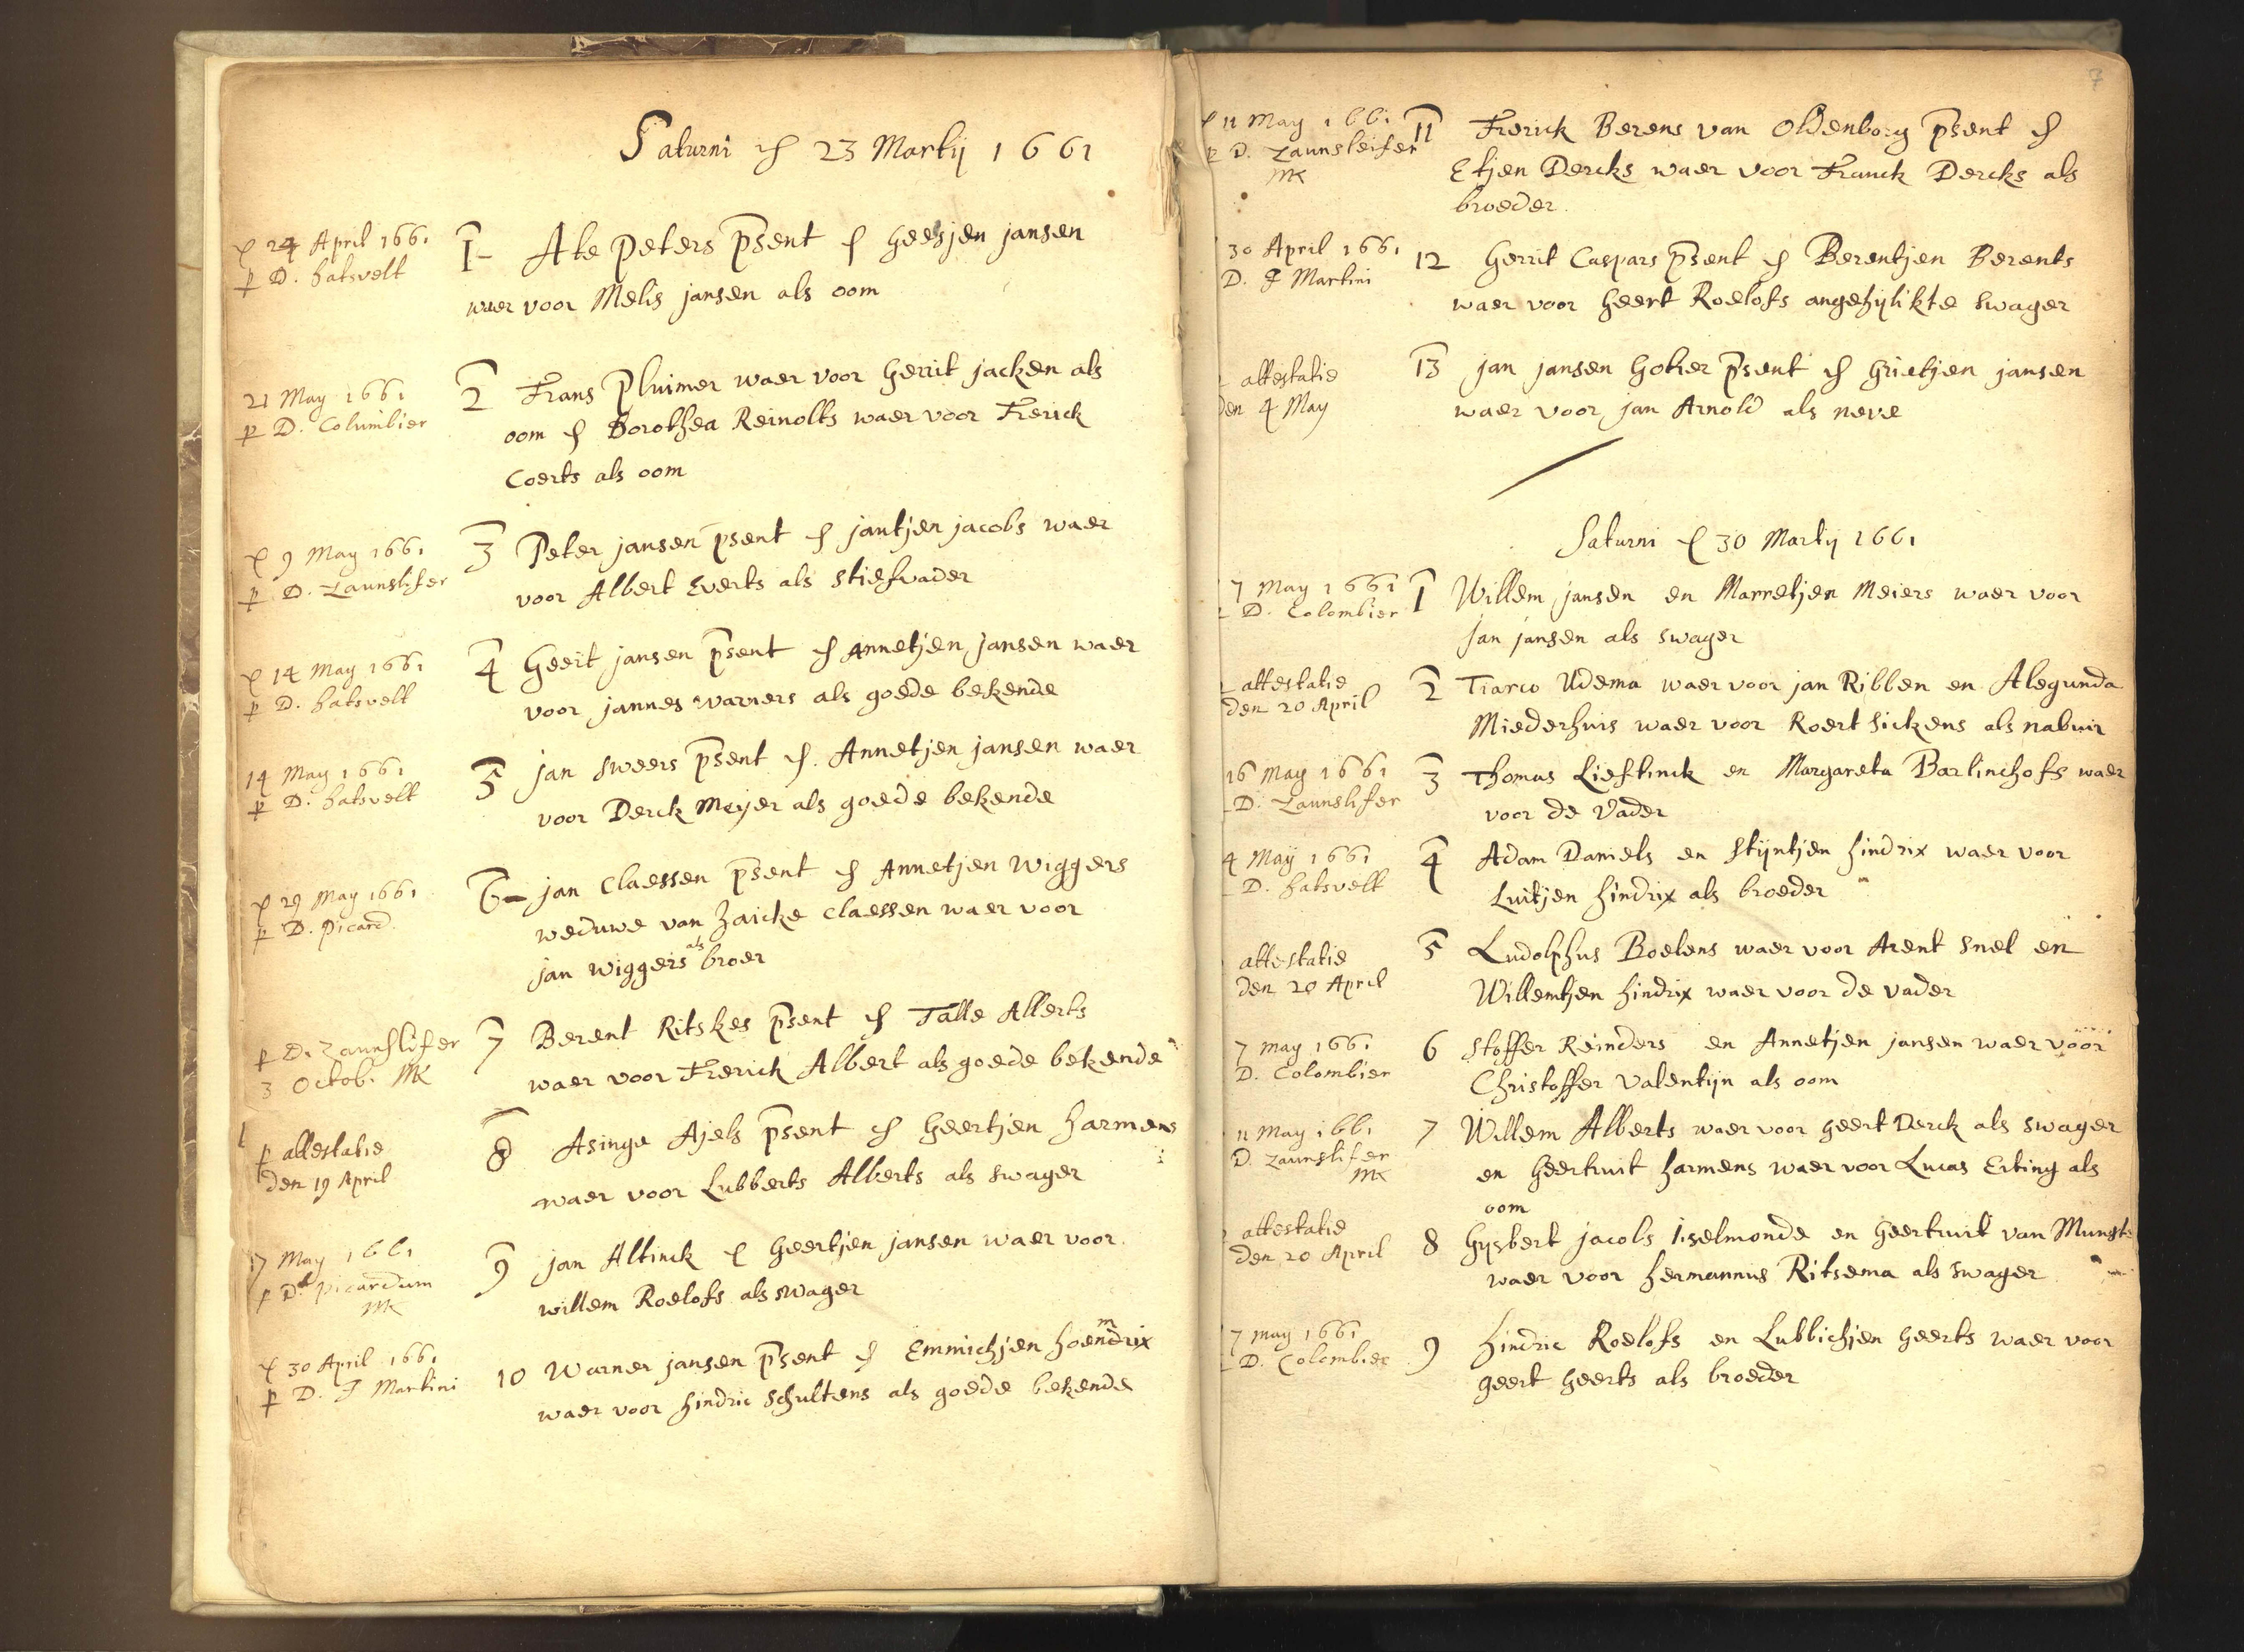 Saturni den 23 Martij 1661
24 April 1661
p D. hatsvelt
1 Ate Peters psent en Geesjen jansen
waer voor Melis jansen als oom
21 May 1661
p D. Columbier
2 Frans Pluimer waer voor Gerrit jacken als
oom en Dorothea Reinolts waer voor Frerick
Coerts als oom
9 May 1661
p D. Zaunslifer
3 Peter jansen psent en jantjen jacobs waer
voor Albert Everts als stiefvader
14 May 1661
p D. hatsvelt
4 Geert jansen psent en Annetjen jansen waer
voor jannes warners als goede bekende
14 May 1661
p D. hatsvelt
5 jan Sweers psent en Annetjen jansen waer
voor Derck Meyer als goede bekende
29 May 1661
p D. Picard
6 jan Claessen psent en Annetjen Wiggers
weduwe van Haicke Claessen waer voor
jan Wiggers als broer
p D. Zaunslifer
3 Octob. MK
7 Berent Ritskes psent en Talle Allerts
waer voor Frerick Albert als goede bekende
p attestatie
den 19 April
8 Asinge Ajels psent en Geertjen harmens
waer voor Lubberts Alberts als swager
17 May 1661
p D. Picardum
MK
9 jan Altinck en Geertjen jansen waer voor
willem Roelofs als swager
30 April 1661
p D. J Martini
10 Warner jansen psent en Emmichjen hoemdrix
waer voor hindric Schultens als goede bekende
7
11 May 1661
p D. Zaunsleifer
MK
11 Frerick Berens van Oldenborg psent en
Etjen Dercks waer voor Franck Dercks als
broeder
30 April 1661
D. J Martini
12 Gerrit Caspars psent en Berentjen Berents
waer voor Geert Roelofs angehylikte swager
attestatie
den 4 May
13 jan jansen Goher psent en Grietjen jansen
waer voor jan Arnold als neve
Saturni den 30 Martij 1661
7 May 1661
D. Colombier
1 Willem jansen en Marretjen Meiers waer voor
jan jansen als swager
attestatie
den 20 April
2 Tiarco Udema waer voor jan Ribben en Alegunda
Miederhuis waer voor Roert Sickens als nabuir
16 May 1661
D. Zaunslifer
3 Thomas Lieftinck en Margareta Barlinchofs waer
voor de Vader
4 Maij 1661
D. hatsvelt
4 Adam Daniels en Stijntjen hindrix waer voor
Luitjen hindrix als broeder
attestatie
den 20 April
5 Ludolphus Boelens waer voor Arent Snel en
Willemtjen hindrix waer voor de vader
7 may 1661
D. Colombier
6 Stoffer Reinders en Annetjen jansen waer voor
Christoffer Valentijn als oom
11 May 1661
D. Zaunslifer
MK
7 Willem Alberts waer voor geert Derck als swager
en Geertruit harmens waer voor Lucas Erting als
oom
attestatie
den 20 April
8 Gysbert jacobs iselmonde en Geertruit van Munst
waer voor hermannus Ritsema als swager
7 may 1661
D. Colombier
9 hindric Roelofs en Lubbichjen Geerts waer voor
geert Geerts als broeder